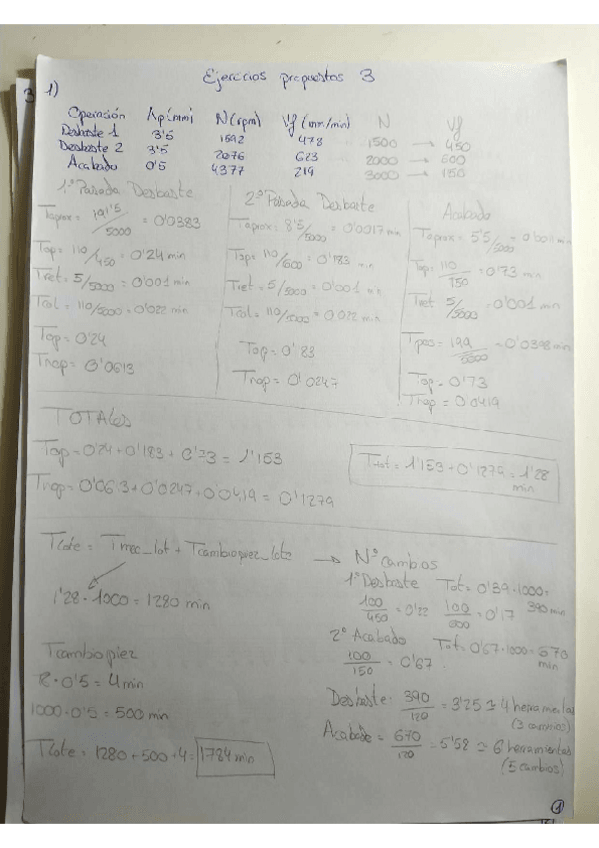 Ejercicios propuestos 3
3
1)
Operación Ap(mm) N(rpm) Vf(mm/min) N Vf
Desbaste 1 3'5 1592 478 1500 → 450
Desbaste 2 3'5 2076 623 2000 → 600
Acabado 0'5 4377 219 3000 → 150
1ª Pasada Desbaste
Taprox = 191'5/5000 = 0'0383
Top = 110/450 = 0'24 min
Tret = 5/5000 = 0'001 min
Tcol = 110/5000 = 0'022 min
Top = 0'24
Tnop = 0'0613
2ª Pasada Desbaste
Taprox = 8'5/5000 = 0'0017 min
Top = 110/600 = 0'183 min
Tret = 5/5000 = 0'001 min
Tcol = 110/5000 = 0'022 min
Top = 0'183
Tnop = 0'0247
Acabado
Taprox = 5'5/5000 = 0'0011 min
Top = 110/150 = 0'73 min
Tret 5/5000 = 0'001 min
Tpos = 199/5000 = 0'0398 min
Top = 0'73
Tnop = 0'0419
TOTALES
Top = 0'24 + 0'183 + 0'73 = 1'153
Tnop = 0'0613 + 0'0247 + 0'0419 = 0'1279
Ttot = 1'153 + 0'1279 = 1'28 min
Tlote = Tmec_lot + Tcambiopiez_lote → Nº cambios
1'28 · 1000 = 1280 min
Tcambiopiez
8 · 0'5 = 4 min
1000 · 0'5 = 500 min
Tlote = 1280 + 500 + 4 = 1784 min
1º Desbaste Tot = 0'39 · 1000 = 390 min
100/450 = 0'22 100/600 = 0'17
2º Acabado Tot = 0'67 · 1000 = 670 min
100/150 = 0'67
Desbaste: 390/120 = 3'25 ≅ 4 herramientas
(3 cambios)
Acabado = 670/120 = 5'58 ≅ 6 herramientas
(5 cambios)
1